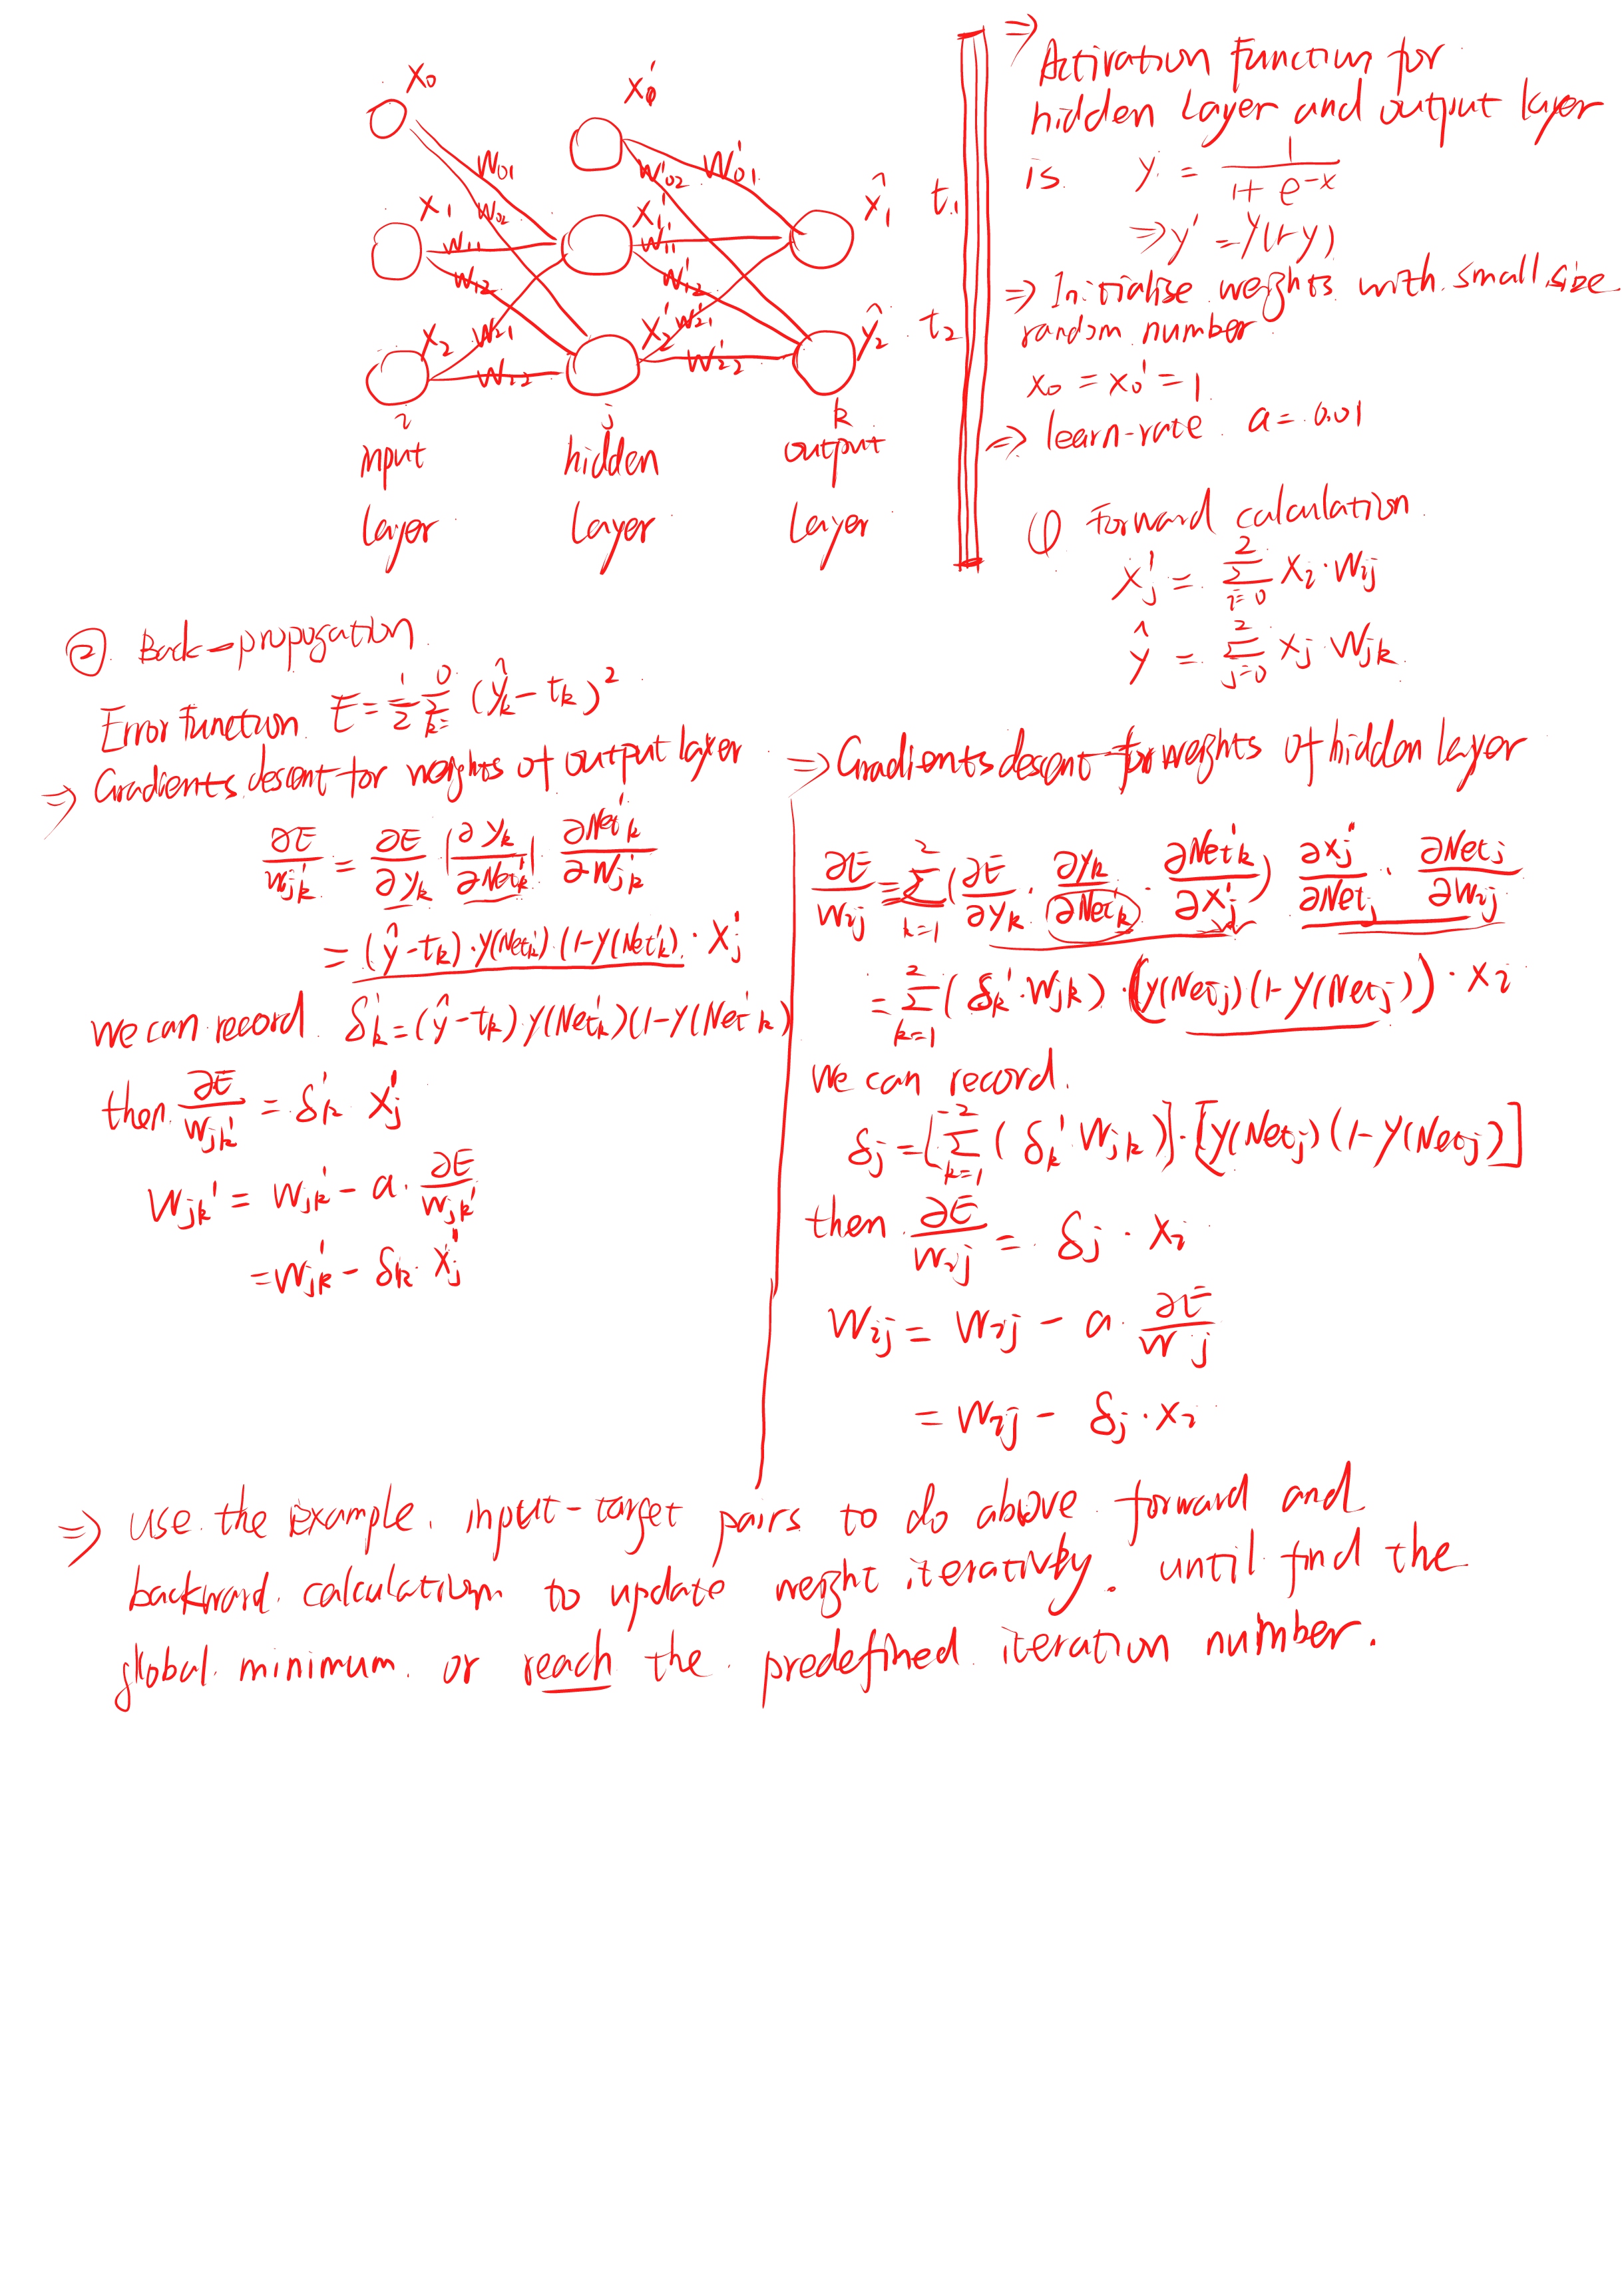 x₀ x₀'
W₀₁ W₀₂ W'₀₂ W'₀₁
x₁ W₁₁ W₁₂ x₁' W'₁₁ W'₁₂ x̂₁ t₁
x₂ W₂₁ W₂₂ x₂' W'₂₁ W'₂₂ ŷ₂ t₂
i j k
input hidden output
layer layer layer
⇒ Activation function for
hidden layer and output layer
is y = 1/(1+e^-x)
⇒ y' = y(1-y)
⇒ Initialise weights with small size
random number
x₀ = x₀' = 1
⇒ learn-rate a = 0.01
① Forward calculation
x'j = Σ_{i=0}^{2} xi · Wij
ŷ = Σ_{j=0}^{2} xj · Wjk
② Back-propogation
Error function E = 1/2 Σ_{k=}^{0} (ŷk - tk)²
⇒ Gradients descent for weights of output layer
∂E/W'jk = ∂E/∂yk (∂yk/∂Net'k) ∂Net'k/∂W'jk
= (ŷ-tk) · y(Net'k) · (1-y(Net'k) · x'j
we can record δ'k = (ŷ-tk) y(Net'k)(1-y(Net'k)
then ∂E/Wjk' = δ'k x'j
Wjk' = W'jk - a · ∂E/Wjk'
= W'jk - δk · x'j
⇒ Gradients descent for weights of hidden layer
∂E/Wij = Σ_{k=1}^{2} (∂E/∂yk · ∂yk/∂Net'k · ∂Net'k/∂x'j) ∂x'j/∂Netj · ∂Netj/∂Wij
= Σ_{k=1}^{2} (δk' · Wjk) · (y(Netj)(1-y(Netj)) · xi
we can record
δj = [Σ_{k=1}^{2} (δk' Wjk)] · [y(Netj)(1-y(Netj)]
then ∂E/Wij = δj · xi
Wij = Wij - a · ∂E/W j
= Wij - δj · xi
⇒ use the example input-target pairs to do above forward and
backward calculation to update weight iterativly. until find the
global minimum or reach the predefined iteration number.